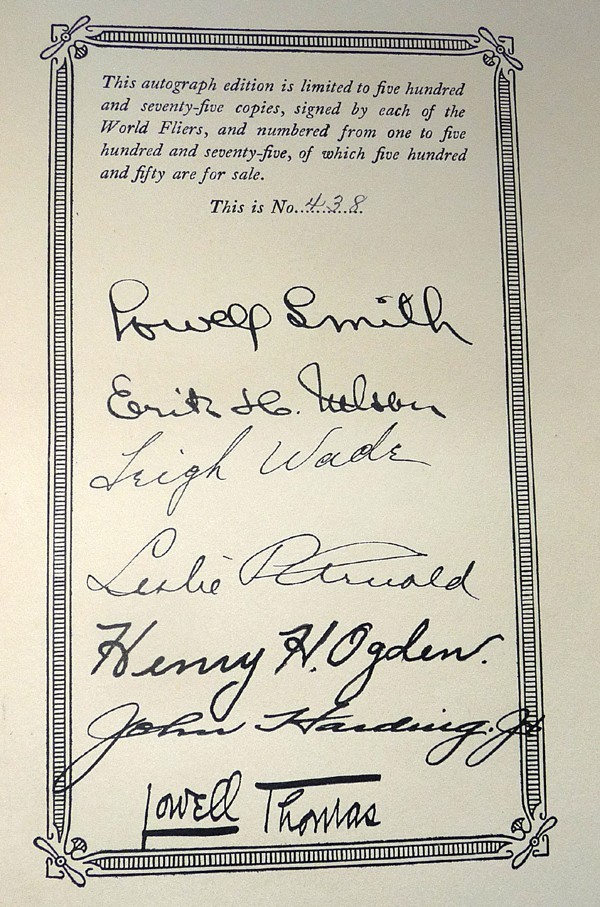 This autograph edition is limited to five hundred
and seventy-five copies, signed by each of the
World Fliers, and numbered from one to five
hundred and seventy-five, of which five hundred
and fifty are for sale.
This is No. 438
Lowell Smith
Erik H. Nelson
Leigh Wade
Leslie P Arnold
Henry H. Ogden.
John Harding. Jr
Lowell Thomas